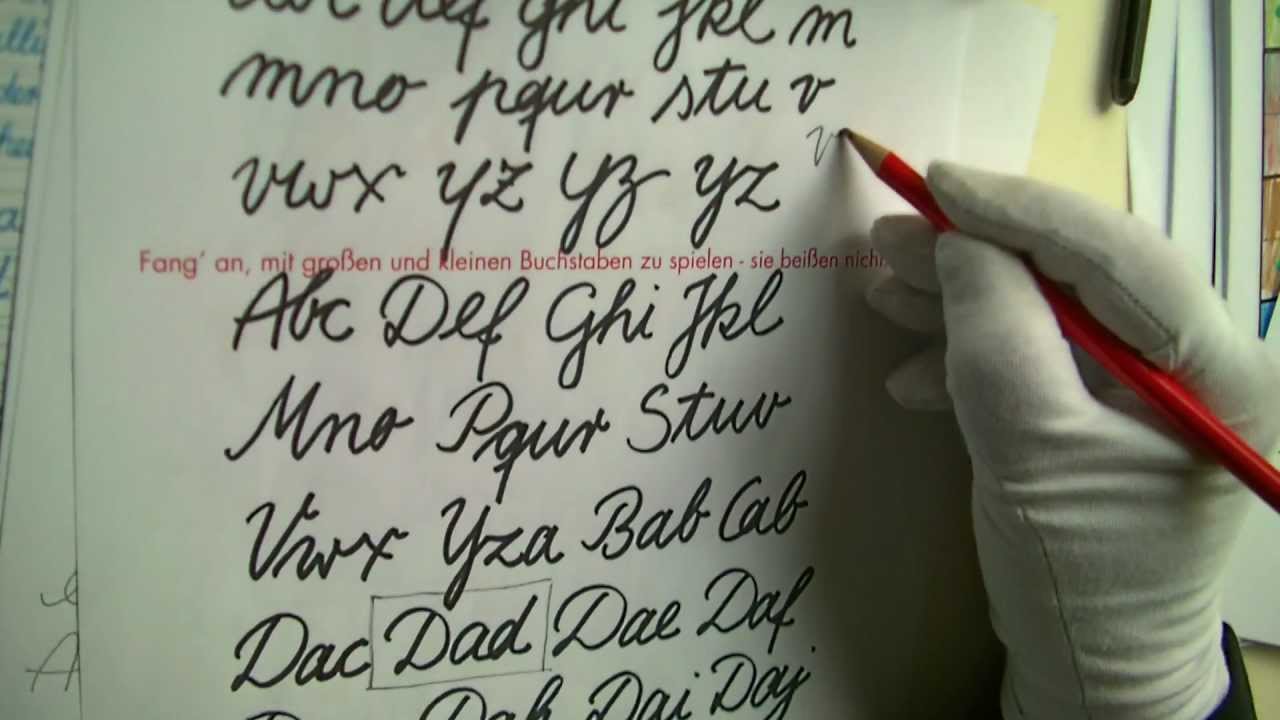 abc def ghi jkl m
mno pqur stu v
v
vwx yz yz yz
Fang' an, mit großen und kleinen Buchstaben zu spielen - sie beißen nicht
Abc Def Ghi Jkl
Mno Pqur Stuv
Vwx Yza Bab Cab
Dac Dad Dae Daf
Dah Dai Daj
A